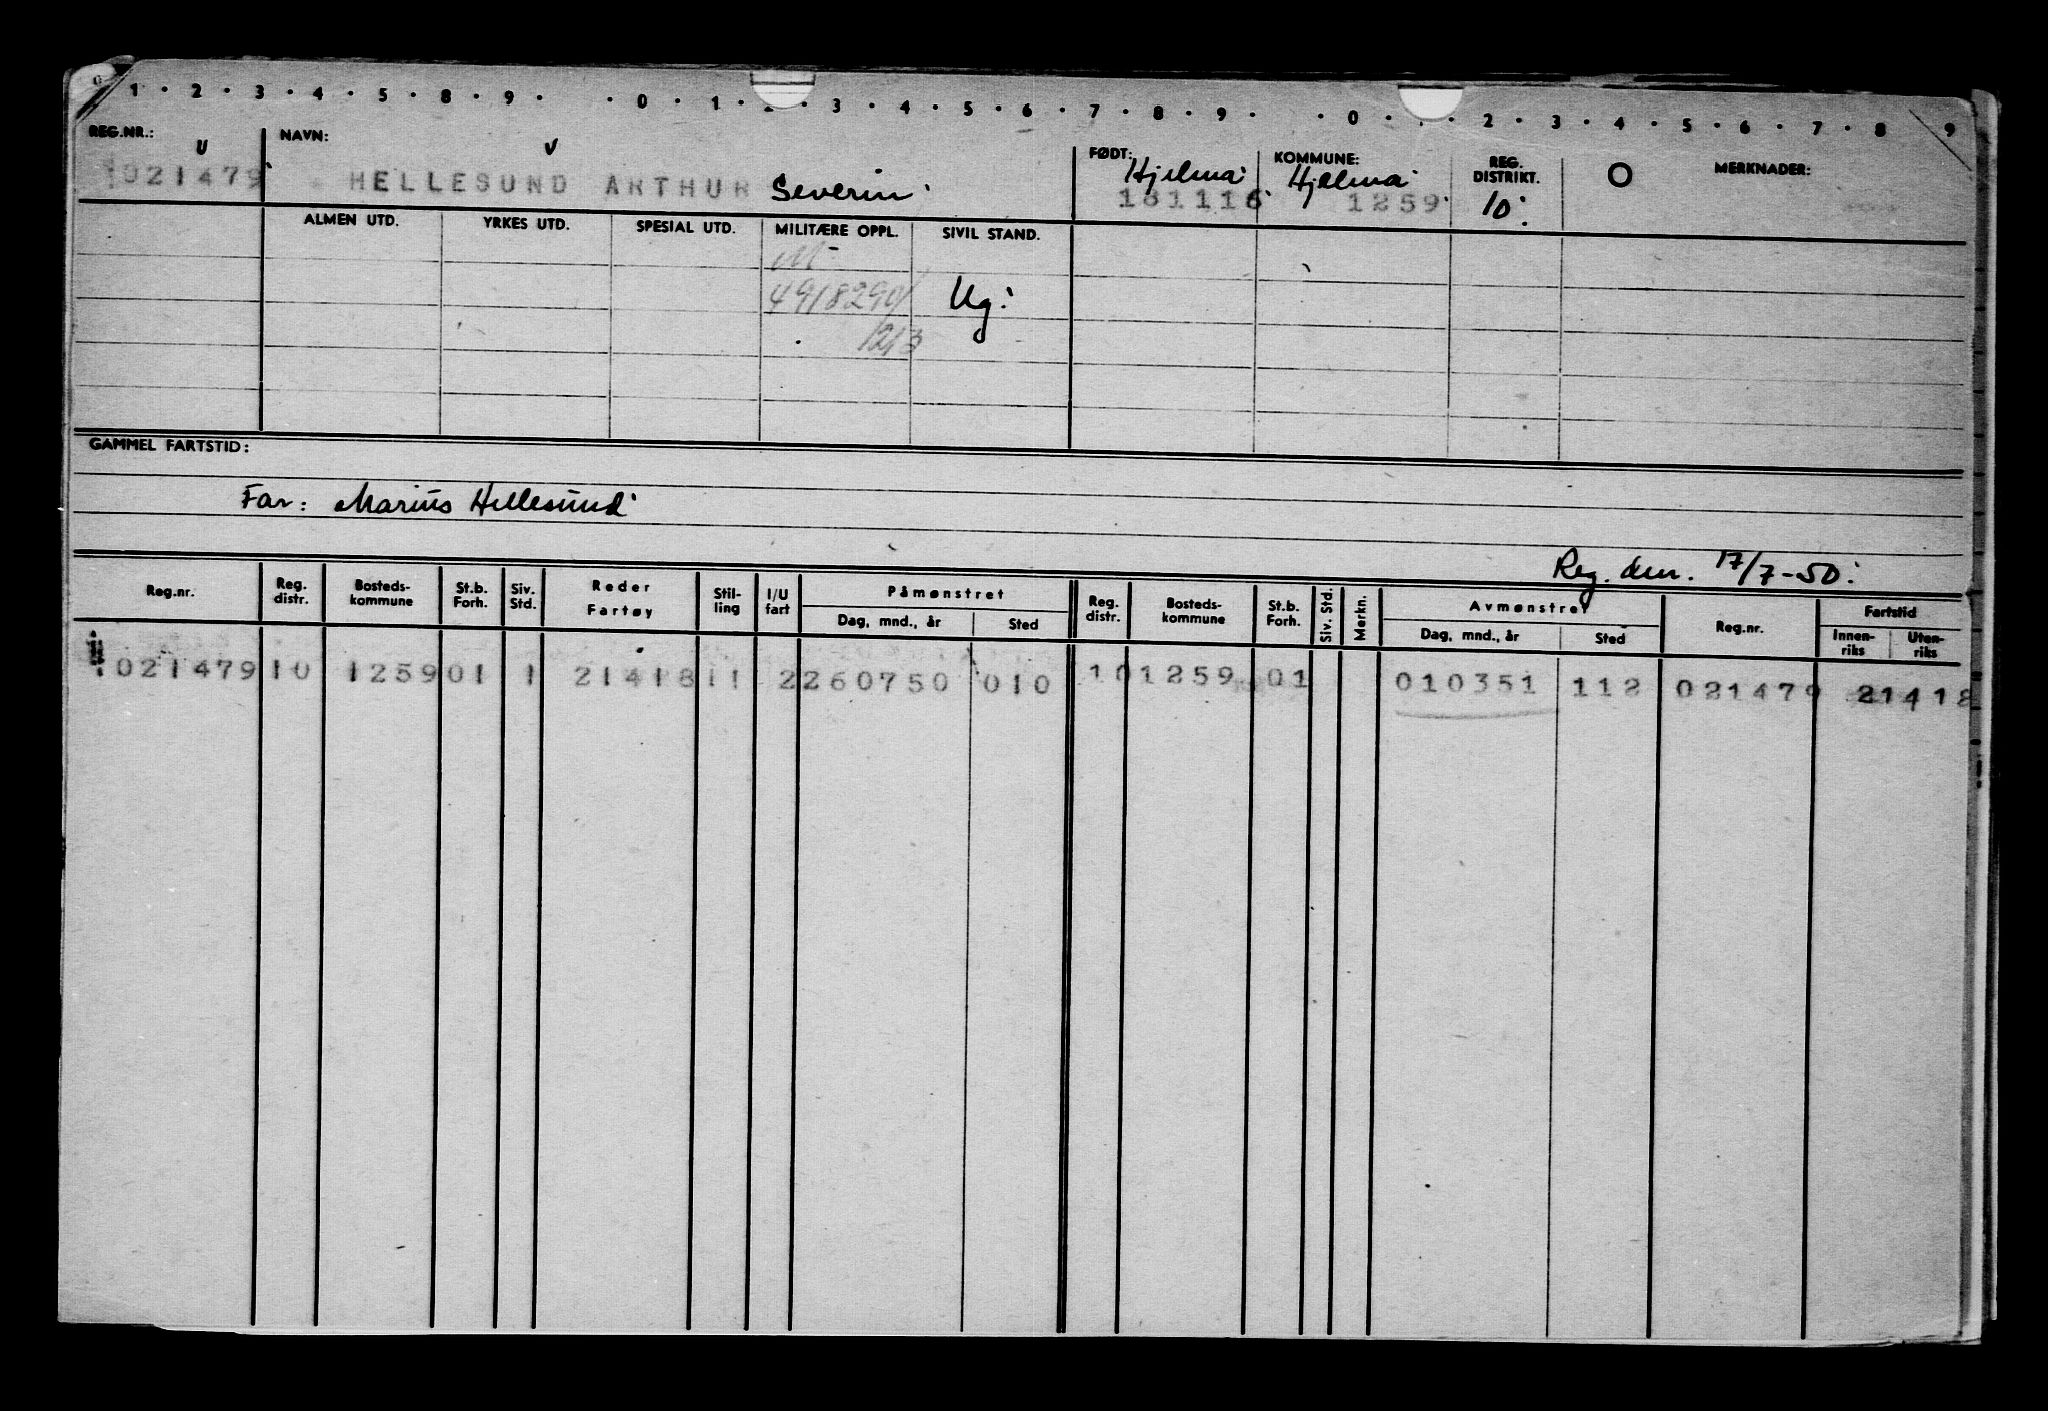 1 · 2 · 3 · 4 · 5 · 8 · 9 · · 0 · 1 · · 3 · 4 · 5 · 6 · 7 · 8 · 9 · · 0 · · 2 · 3 · 4 · 5 · 6 · 7 · 8 9
REG.NR.: NAVN: FØDT: KOMMUNE: REG. DISTRIKT. O MERKNADER:
U V Hjelma Hjelma
021479 HELLESUND ARTHUR Severin 181116 1259 10
ALMEN UTD. YRKES UTD. SPESIAL UTD. MILITÆRE OPPL. SIVIL STAND.
M-
4918290/ Ug.
1213
GAMMEL FARTSTID:
Far: Marius Hellesund
Reg. den. 17/7-50.
Reg.nr. Reg. distr. Bosteds- kommune St.b. Forh. Siv. Std. Reder Fartøy Stil- ling I/U fart Påmønstret Reg. distr. Bosteds- kommune St.b. Forh. Siv. Std. Merkn. Avmønstret Reg.nr. Fartstid
Dag, mnd., år Sted Dag, mnd., år Sted Innen- riks Uten- riks
021479 10 1259 01 1 21418 11 2 260750 010 10 1259 01 010351 112 021479 21418